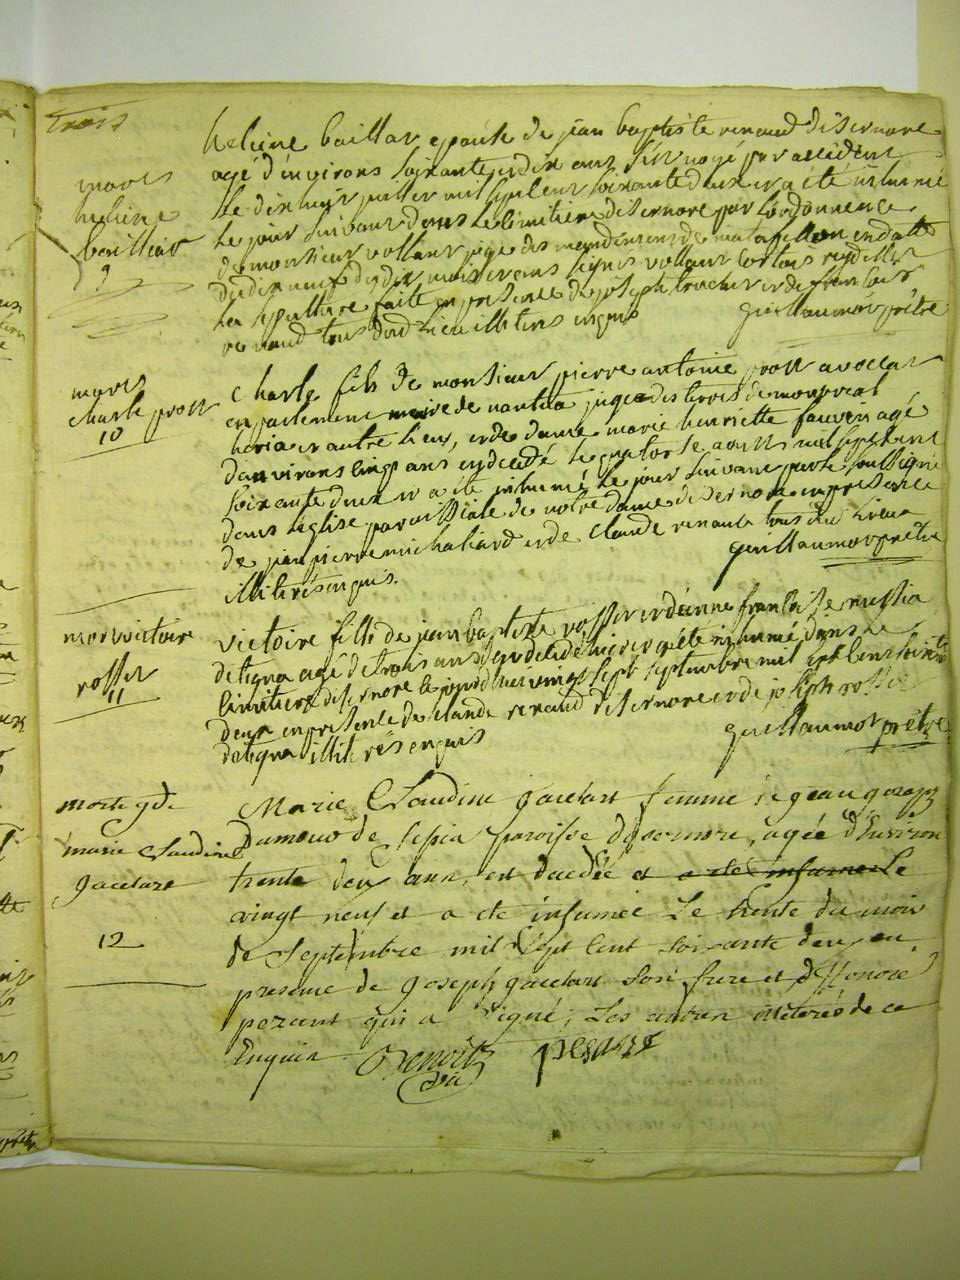 trois
mort
helene
bailliat
9
heleine baillat epouse de jean baptiste renaud disernore
agé d'environs soixante et dix ans s'est noyé par accident
le dix huit juillet mil sept cent soixante deux et a été inhumé
le jour suivant dans le cimitiere disernore par l'ordonnence
de monsieur vollant juge des mandements de matafellon en datte
du dix neuf du dix mois et ans signés vollant
la sepulture faite en presence de joseph et de francois
renaud tous dud lieu illiters enquis guillaumot prêtre
mort
charle prost
10
charle fils de monsieur pierre antoine prost avocat
en parlement maire de nantua juge des terres de montreal
heria et autre lieux, et de dame marie henriette fauven agé
d'environs cinq ans est decedé le quatorse aoust mil sept cent
soixante deux et a été inhumé le jour suivant par le soussigné
dans l'église paroissiale de notre dame disernore en presence
de jean pierre michaliard et de claude renaud tous du lieu
illiterés enquis. guillaumot prêtre
mort victoire
rosset
11
victoire fille de jean baptiste rosset et d'éanne francoise
detigna agé de trois ans est decedé hier et a été inhumé dans le
cimitiere disernore le jourdhui vingt sept septembre mil sept cent soixante
deux en presence de claude renaud disernore et de joseph rosset
detigna illiterés enquis guillaumot prêtre
morte
marie claudine
gacelart
12
Marie Claudine gacelart femme de jean joseph
Damour de sepia paroisse disernore, agée d'environ
trente deux ans, est decedée et a eté inhumée Le
vingt neuf et a ete inhumée Le trente du mois
de septembre mil sept cent soixante deux en
presence de joseph gacelart son frere et d'honoré
pezant qui a signé, les autres illeterés de ce
Enquis Benoit pezant